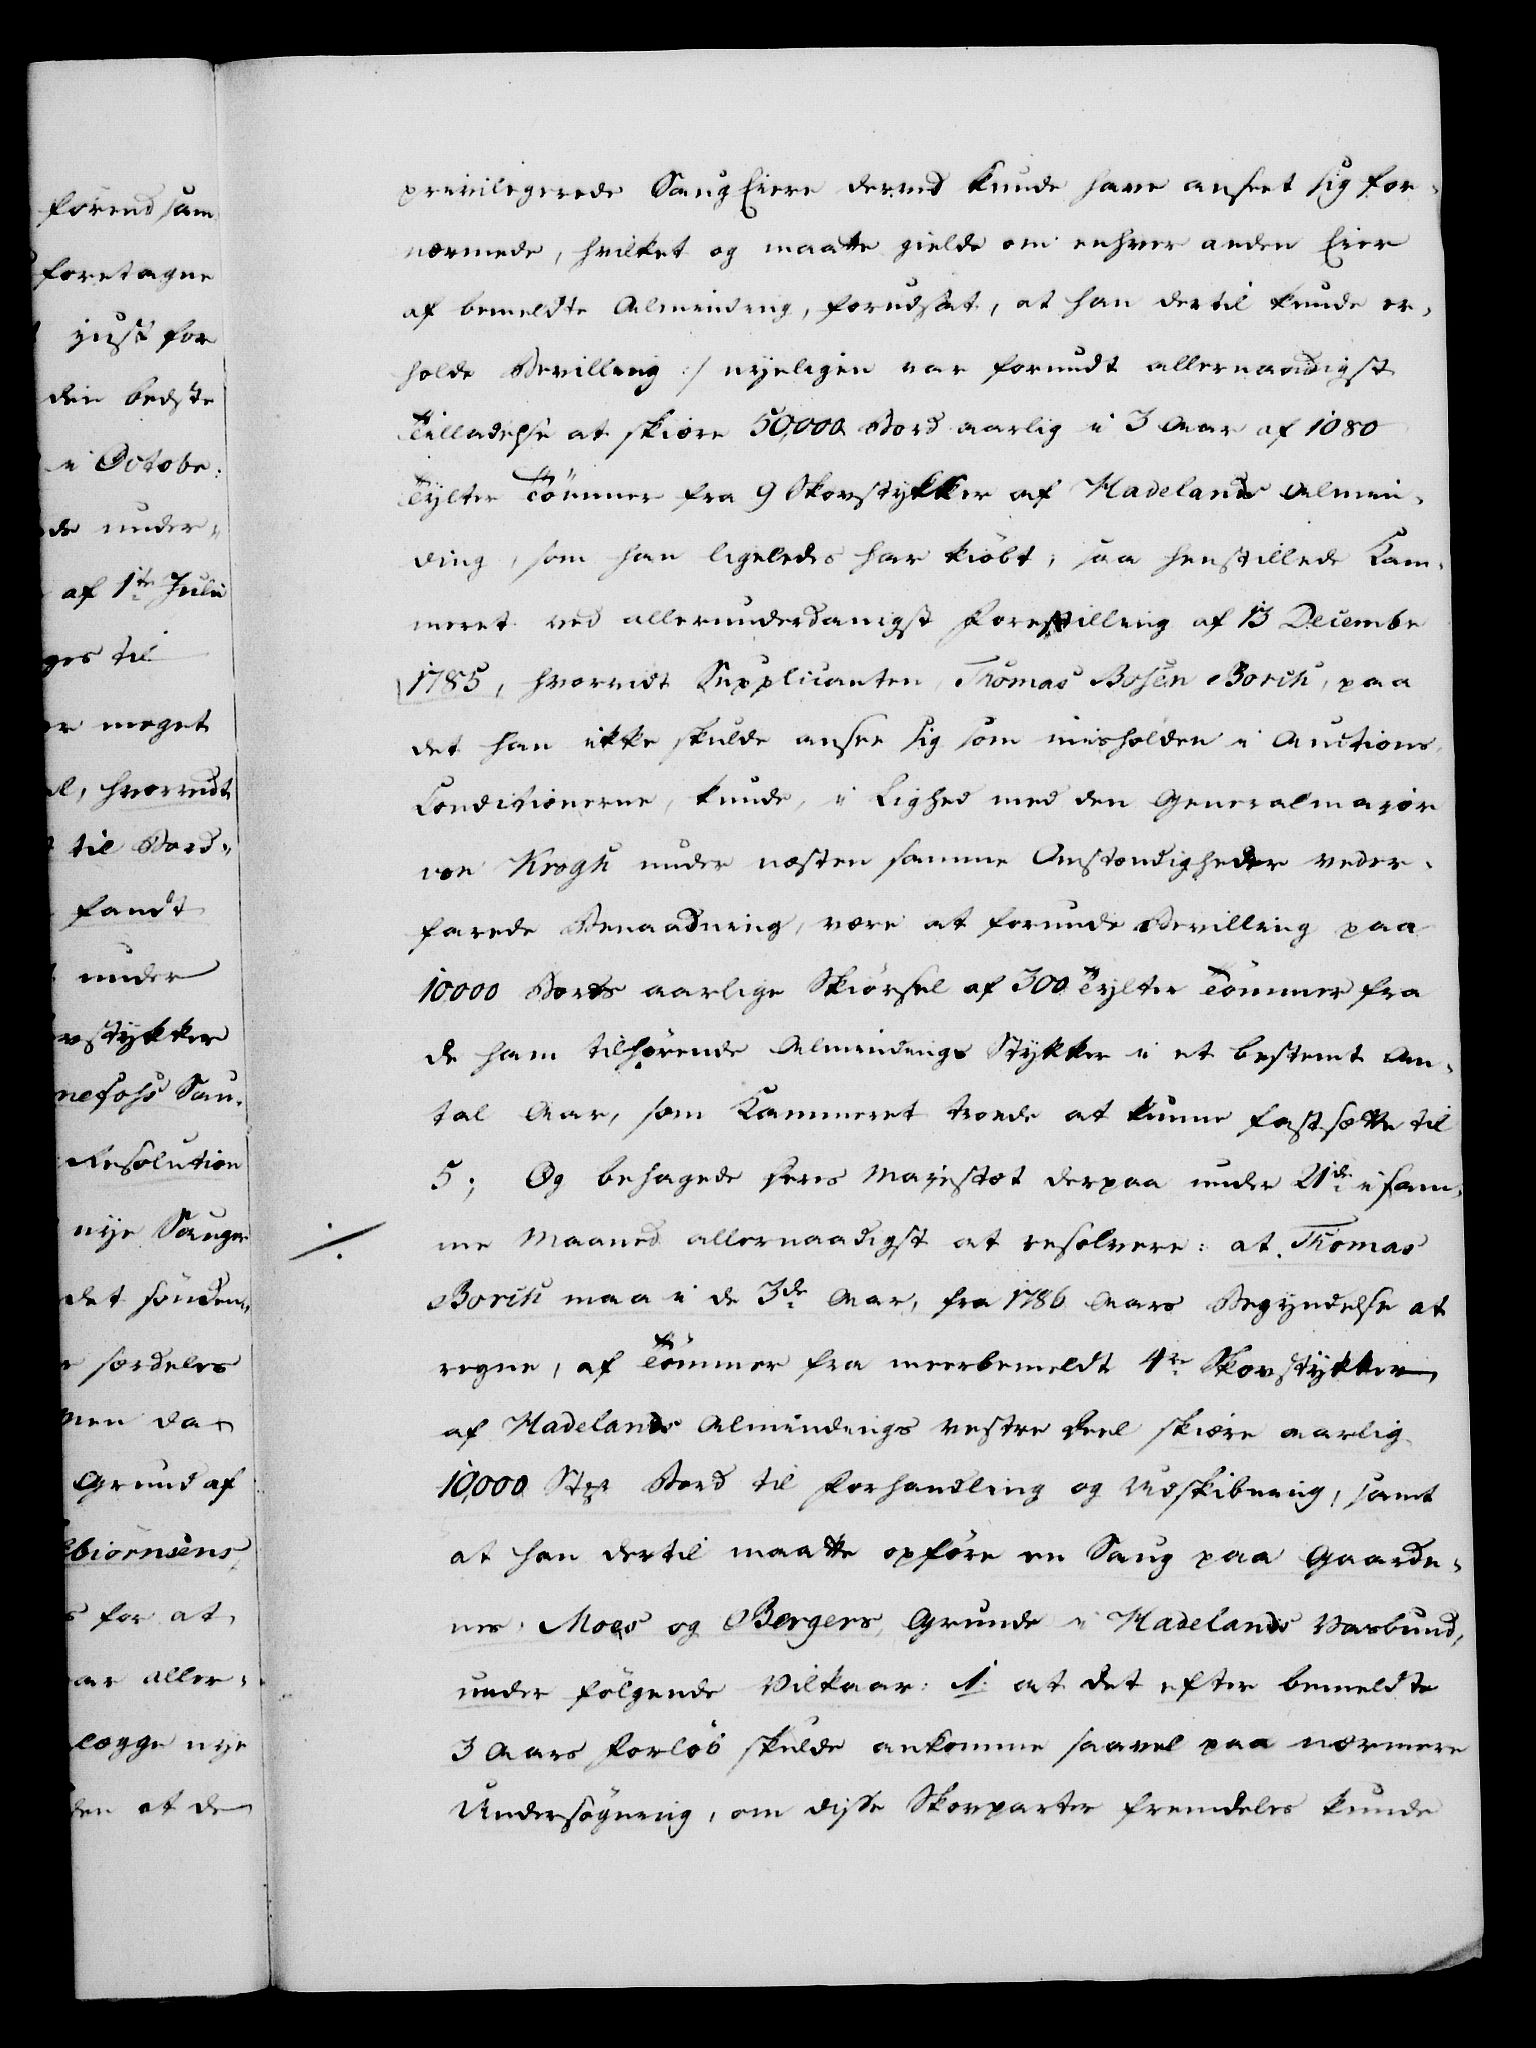 førend sam
foretagne
just for
den bedste
i Octobr:
de under-
af 1te Julii
ges til
er meget
el, hvorvidt
til Bord-
fandt
under
vstykker
nefoss Sau-
Resolution
nye Sauger
det sønden-
særdeles
men da
Grund af
biørnsens
for at
ar aller-
lægge nye
den at de
privilegerede Saug Eiere derved kunde have anseet sig for-
nærmede, hvilket og maatte gielde om enhver anden Eier
af bemeldte Alminding, forudsat, at han dertil kunde er-
holde Bevilling :/ nyeligen var forundt allernaadigst
Tilladelse at skiære 50,000 Bord aarlig i 3 Aar af 1080
Tylter Tömmer fra 9 Skovstykker af Hadelands Almin-
ding, som han ligeledes har kiöbt, saa henstillede Kam-
meret ved allerunderdanigst Forestilling af 13 Decembr
1785, hvorvidt Supplicanten, Thomas Bosen Borch, paa
det han ikke skulde ansee sig som misholden i Auctions
Conditionerne, kunde, i Lighed med den Generalmajor
von Krogh under næsten samme Omstændigheder veder-
farede Benaadning, være at forunde Bevilling paa
10000 Bords aarlige Skiørsel af 300 Tylter Tömmer fra
de ham tilhørende Almindings Stykker i et bestemt An-
tal Aar, som Kammeret troede at kunne fastsætte til
5; Og behagede Hans Majestæt derpaa under 21de i sam-
÷ me Maaned allernaadigst at resolvere: at Thomas
Borch maa i de 3de Aar, fra 1786 Aars Begyndelse at
regne, af Tömmer fra meerbemeldt 4re Skovstykker
af Hadelands Almindings vestre Deel skiære aarlig
10,000 Stkr Bord til Forhandling og Udskibning, samt
at han dertil maatte opføre en Saug paa Gaarde-
nes Moes og Bergers Grunde i Hadelands Vasbund,
under følgende Vilkaar: 1. at det efter bemeldte
3 Aars Forløb skulde ankomme saavel paa nærmere
Undersøgning, om disse Skovparter fremdeles kunde